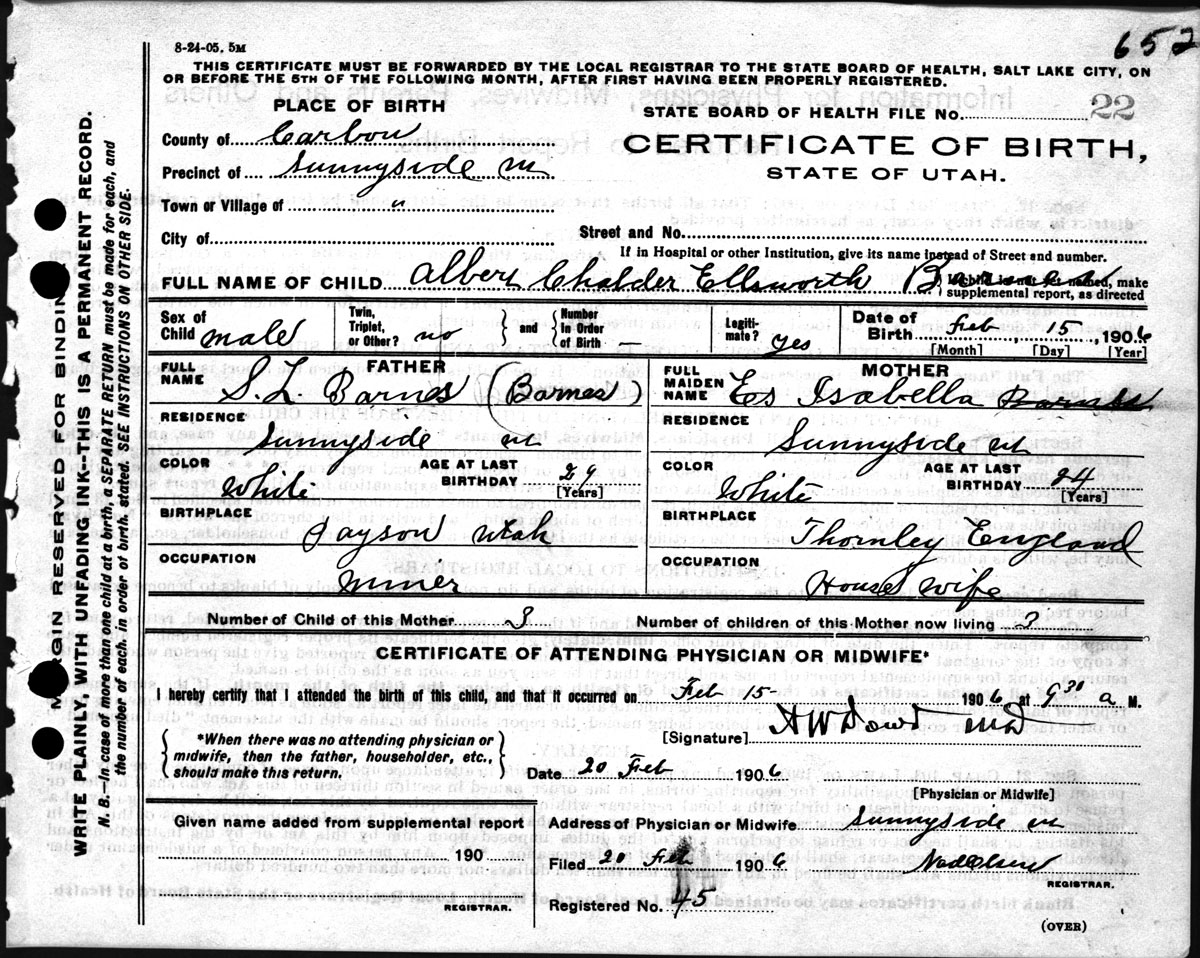 652
8-24-05. 5M
THIS CERTIFICATE MUST BE FORWARDED BY THE LOCAL REGISTRAR TO THE STATE BOARD OF HEALTH, SALT LAKE CITY, ON
OR BEFORE THE 5TH OF THE FOLLOWING MONTH, AFTER FIRST HAVING BEEN PROPERLY REGISTERED.
PLACE OF BIRTH
STATE BOARD OF HEALTH FILE No. 22
County of Carbon
CERTIFICATE OF BIRTH,
Precinct of Sunnyside
STATE OF UTAH.
Town or Village of "
City of
Street and No.
If in Hospital or other Institution, give its name instead of Street and number.
FULL NAME OF CHILD Albert Chalder Ellsworth Barnes
If child is not yet named, make
supplemental report, as directed
Sex of Child male
Twin, Triplet, or Other? no
and Number in Order of Birth —
Legiti-mate? yes
Date of Birth Feb, 15, 1906
[Month] [Day] [Year]
FATHER
FULL NAME S. L. Barnes (Barnes)
MOTHER
FULL MAIDEN NAME Isabella
RESIDENCE Sunnyside
RESIDENCE Sunnyside
COLOR White
AGE AT LAST BIRTHDAY 29
[Years]
COLOR White
AGE AT LAST BIRTHDAY 24
[Years]
BIRTHPLACE Payson Utah
BIRTHPLACE Thornley England
OCCUPATION Miner
OCCUPATION House wife
Number of Child of this Mother 3
Number of children of this Mother now living 3
CERTIFICATE OF ATTENDING PHYSICIAN OR MIDWIFE*
I hereby certify that I attended the birth of this child, and that it occurred on Feb 15 1906 at 9 30 a M.
[Signature] H W Dowd MD
*When there was no attending physician or
midwife, then the father, householder, etc.,
should make this return.
Date 20 Feb 1906
[Physician or Midwife]
Given name added from supplemental report
190
REGISTRAR.
Address of Physician or Midwife Sunnyside
Filed 20 Feb 1906
REGISTRAR.
Registered No. 45
(OVER)
MARGIN RESERVED FOR BINDING
WRITE PLAINLY, WITH UNFADING INK--THIS IS A PERMANENT RECORD.
N. B.—In case of more than one child at a birth, a SEPARATE RETURN must be made for each, and
the number of each, in order of birth, stated. SEE INSTRUCTIONS ON OTHER SIDE.